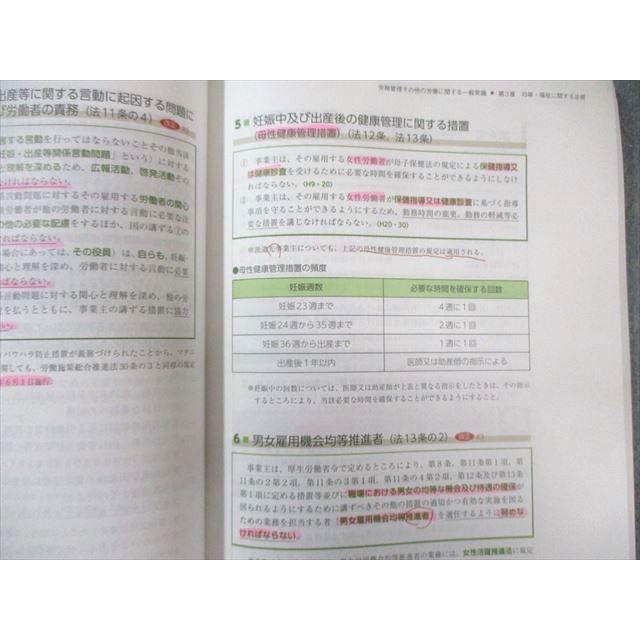 出産等に関する言動に起因する問題に
び労働者の責務（法11条の4）改正
害する言動を行ってはならないことその他当該
妊娠・出産等関係言動問題」という）に対する
と理解を深めるため、広報活動、啓発活動その
ければならない。
係言動問題に対するその雇用する労働者の関心
労働者が他の労働者に対する言動に必要な注
の他の必要な配慮をするほか、国の講ずる①の
ればならない。
る場合にあっては、その役員）は、自らも、妊娠・
心と理解を深め、労働者に対する言動に必要
ばならない。
係言動問題に対する関心と理解を深め、他の労
を払うとともに、事業主の講ずる措置に協力
パワハラ防止措置が義務づけられたことから、マタニ
関しても、労働施策総合推進法30条の3と同様の規定
年6月1日施行
労務管理その他の労働に関する一般常識 ● 第3章
5 妊娠中及び出産後の健康管理に関する措置
（母性健康管理措置）（法12条、法13条）
① 事業主は、その雇用する女性労働者が母子保健法の規定による保健指導又
は健康診査を受けるために必要な時間を確保することができるようにしなけ
ればならない。（H9・20）
② 事業主は、その雇用する女性労働者が保健指導又は健康診査に基づく指導
事項を守ることができるようにするため、勤務時間の変更、勤務の軽減等必
要な措置を講じなければならない。（H20・30）
※派遣先事業主についても、上記の母性健康管理措置の規定は適用される。
●母性健康管理措置の頻度
妊娠週数 必要な時間を確保する回数
妊娠23週まで 4週に1回
妊娠24週から35週まで 2週に1回
妊娠36週から出産まで 1週に1回
出産後1年以内 医師又は助産師の指示による
※妊娠中の回数については、医師又は助産師が上表と異なる指示をしたときは、その指示
するところにより、当該必要な時間を確保することができるようにすること。
6 男女雇用機会均等推進者（法13条の2）改正
事業主は、厚生労働省令で定めるところにより、第8条、第11条第1項、第
11条の2第2項、第11条の3第1項、第11条の4第2項、第12条及び第13条
第1項に定める措置等並びに職場における男女の均等な機会及び待遇の確保が
図られるようにするために講ずべきその他の措置の適切かつ有効な実施を図る
ための業務を担当する者（男女雇用機会均等推進者）を選任するように努めな
ければならない。
男女雇用機会均等推進者の業務には、女性活躍推進法に規定